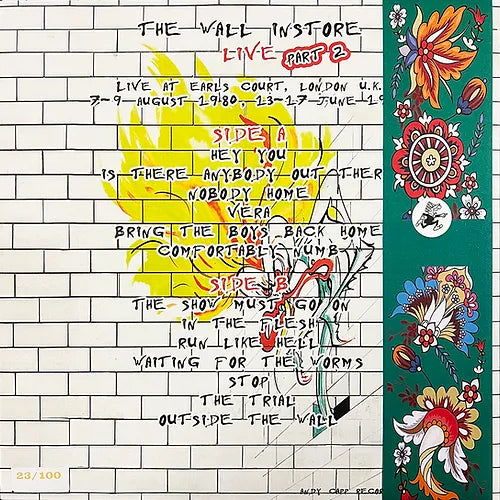 THE WALL INSTORE
LIVE PART 2
LIVE AT EARLS COURT, LONDON U.K.
7-9 AUGUST 1980, 13-17 JUNE 19
SIDE A
HEY YOU
IS THERE ANYBODY OUT THER
NOBODY HOME
VERA
BRING THE BOYS BACK HOME
COMFORTABLY NUMB
SIDE B
THE SHOW MUST GO ON
IN THE FLESH
RUN LIKE HELL
WAITING FOR THE WORMS
STOP
THE TRIAL
OUTSIDE THE WALL
23/100
ANDY CAPP RECOR